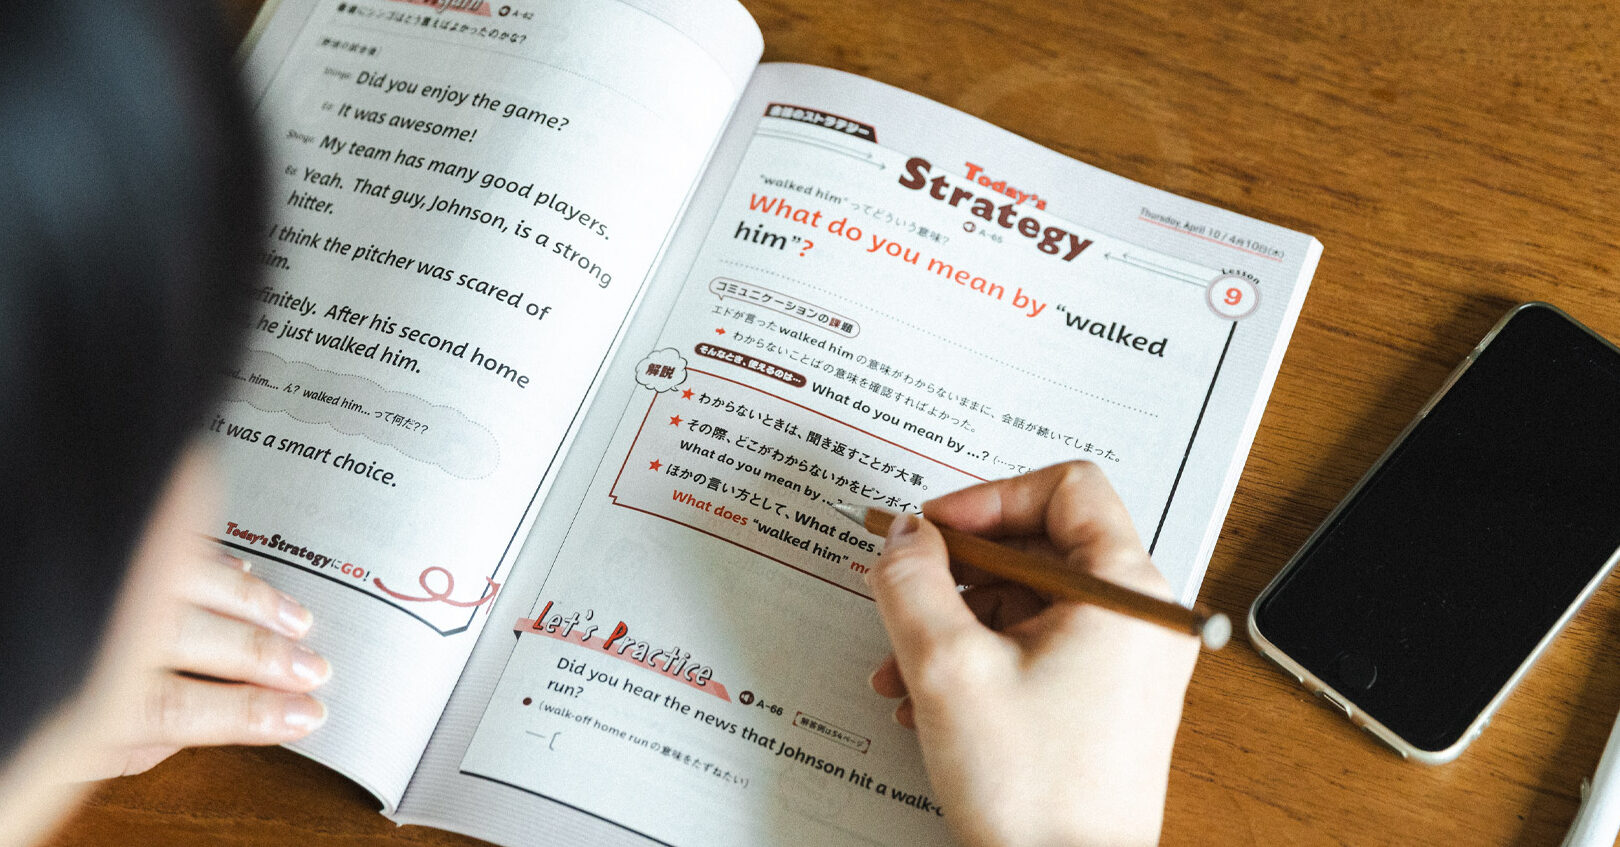 A-62
最後にシンゴはどう言えばよかったのかな?
[野球の試合後]
Shingo: Did you enjoy the game?
Ed: It was awesome!
Shingo: My team has many good players.
Ed: Yeah. That guy, Johnson, is a strong
hitter.
I think the pitcher was scared of
him.
finitely. After his second home
he just walked him.
him.... ん? walked him... って何だ??
it was a smart choice.
Today's StrategyにGO!
会話のストラテジー
Today's
Strategy
A-65
Thursday, April 10 / 4月10日(木)
Lesson
9
"walked him"ってどういう意味?
What do you mean by "walked
him"?
コミュニケーションの課題
エドが言ったwalked himの意味がわからないままに、会話が続いてしまった。
わからないことばの意味を確認すればよかった。
そんなとき、使えるのは…
What do you mean by ...?
解説
★ わからないときは、聞き返すことが大事。
★ その際、どこがわからないかをピンポイン
What do you mean by ...?
★ ほかの言い方として、What does
What does "walked him"
Let's Practice
A-66
解答例は54ページ
Did you hear the news that Johnson hit a walk-
run?
(walk-off home runの意味をたずねたい)